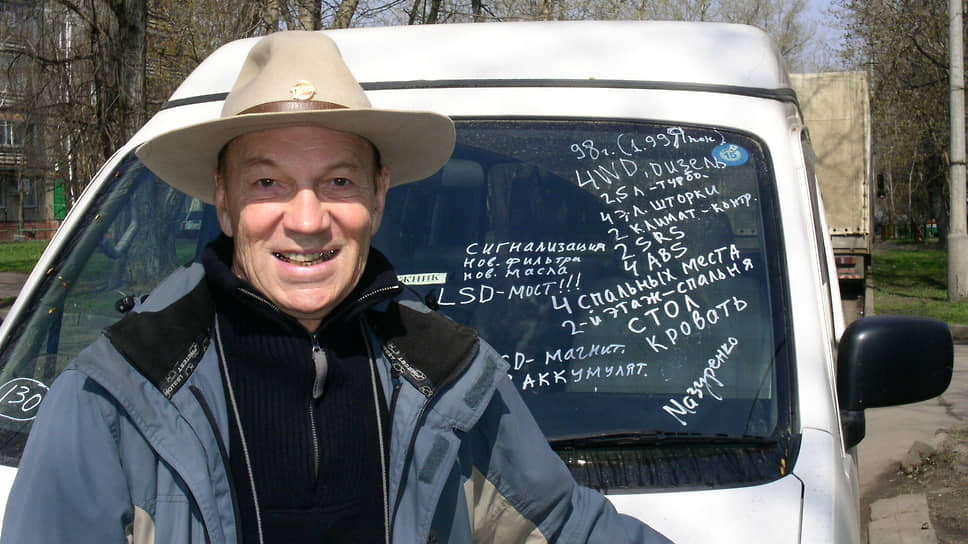 98г. (1.99
15
4WD. дизель
2.5л-турбо-
4 эл. шторки
2 климат.-контр.
2 SRS
4 ABS
сигнализация
нов. фильтра
нов. масла
LSD-мост!!!
4 спальных места
2-й этаж-спальня
стол
кровать
магнит.
аккумулят.
Мазуренко
130